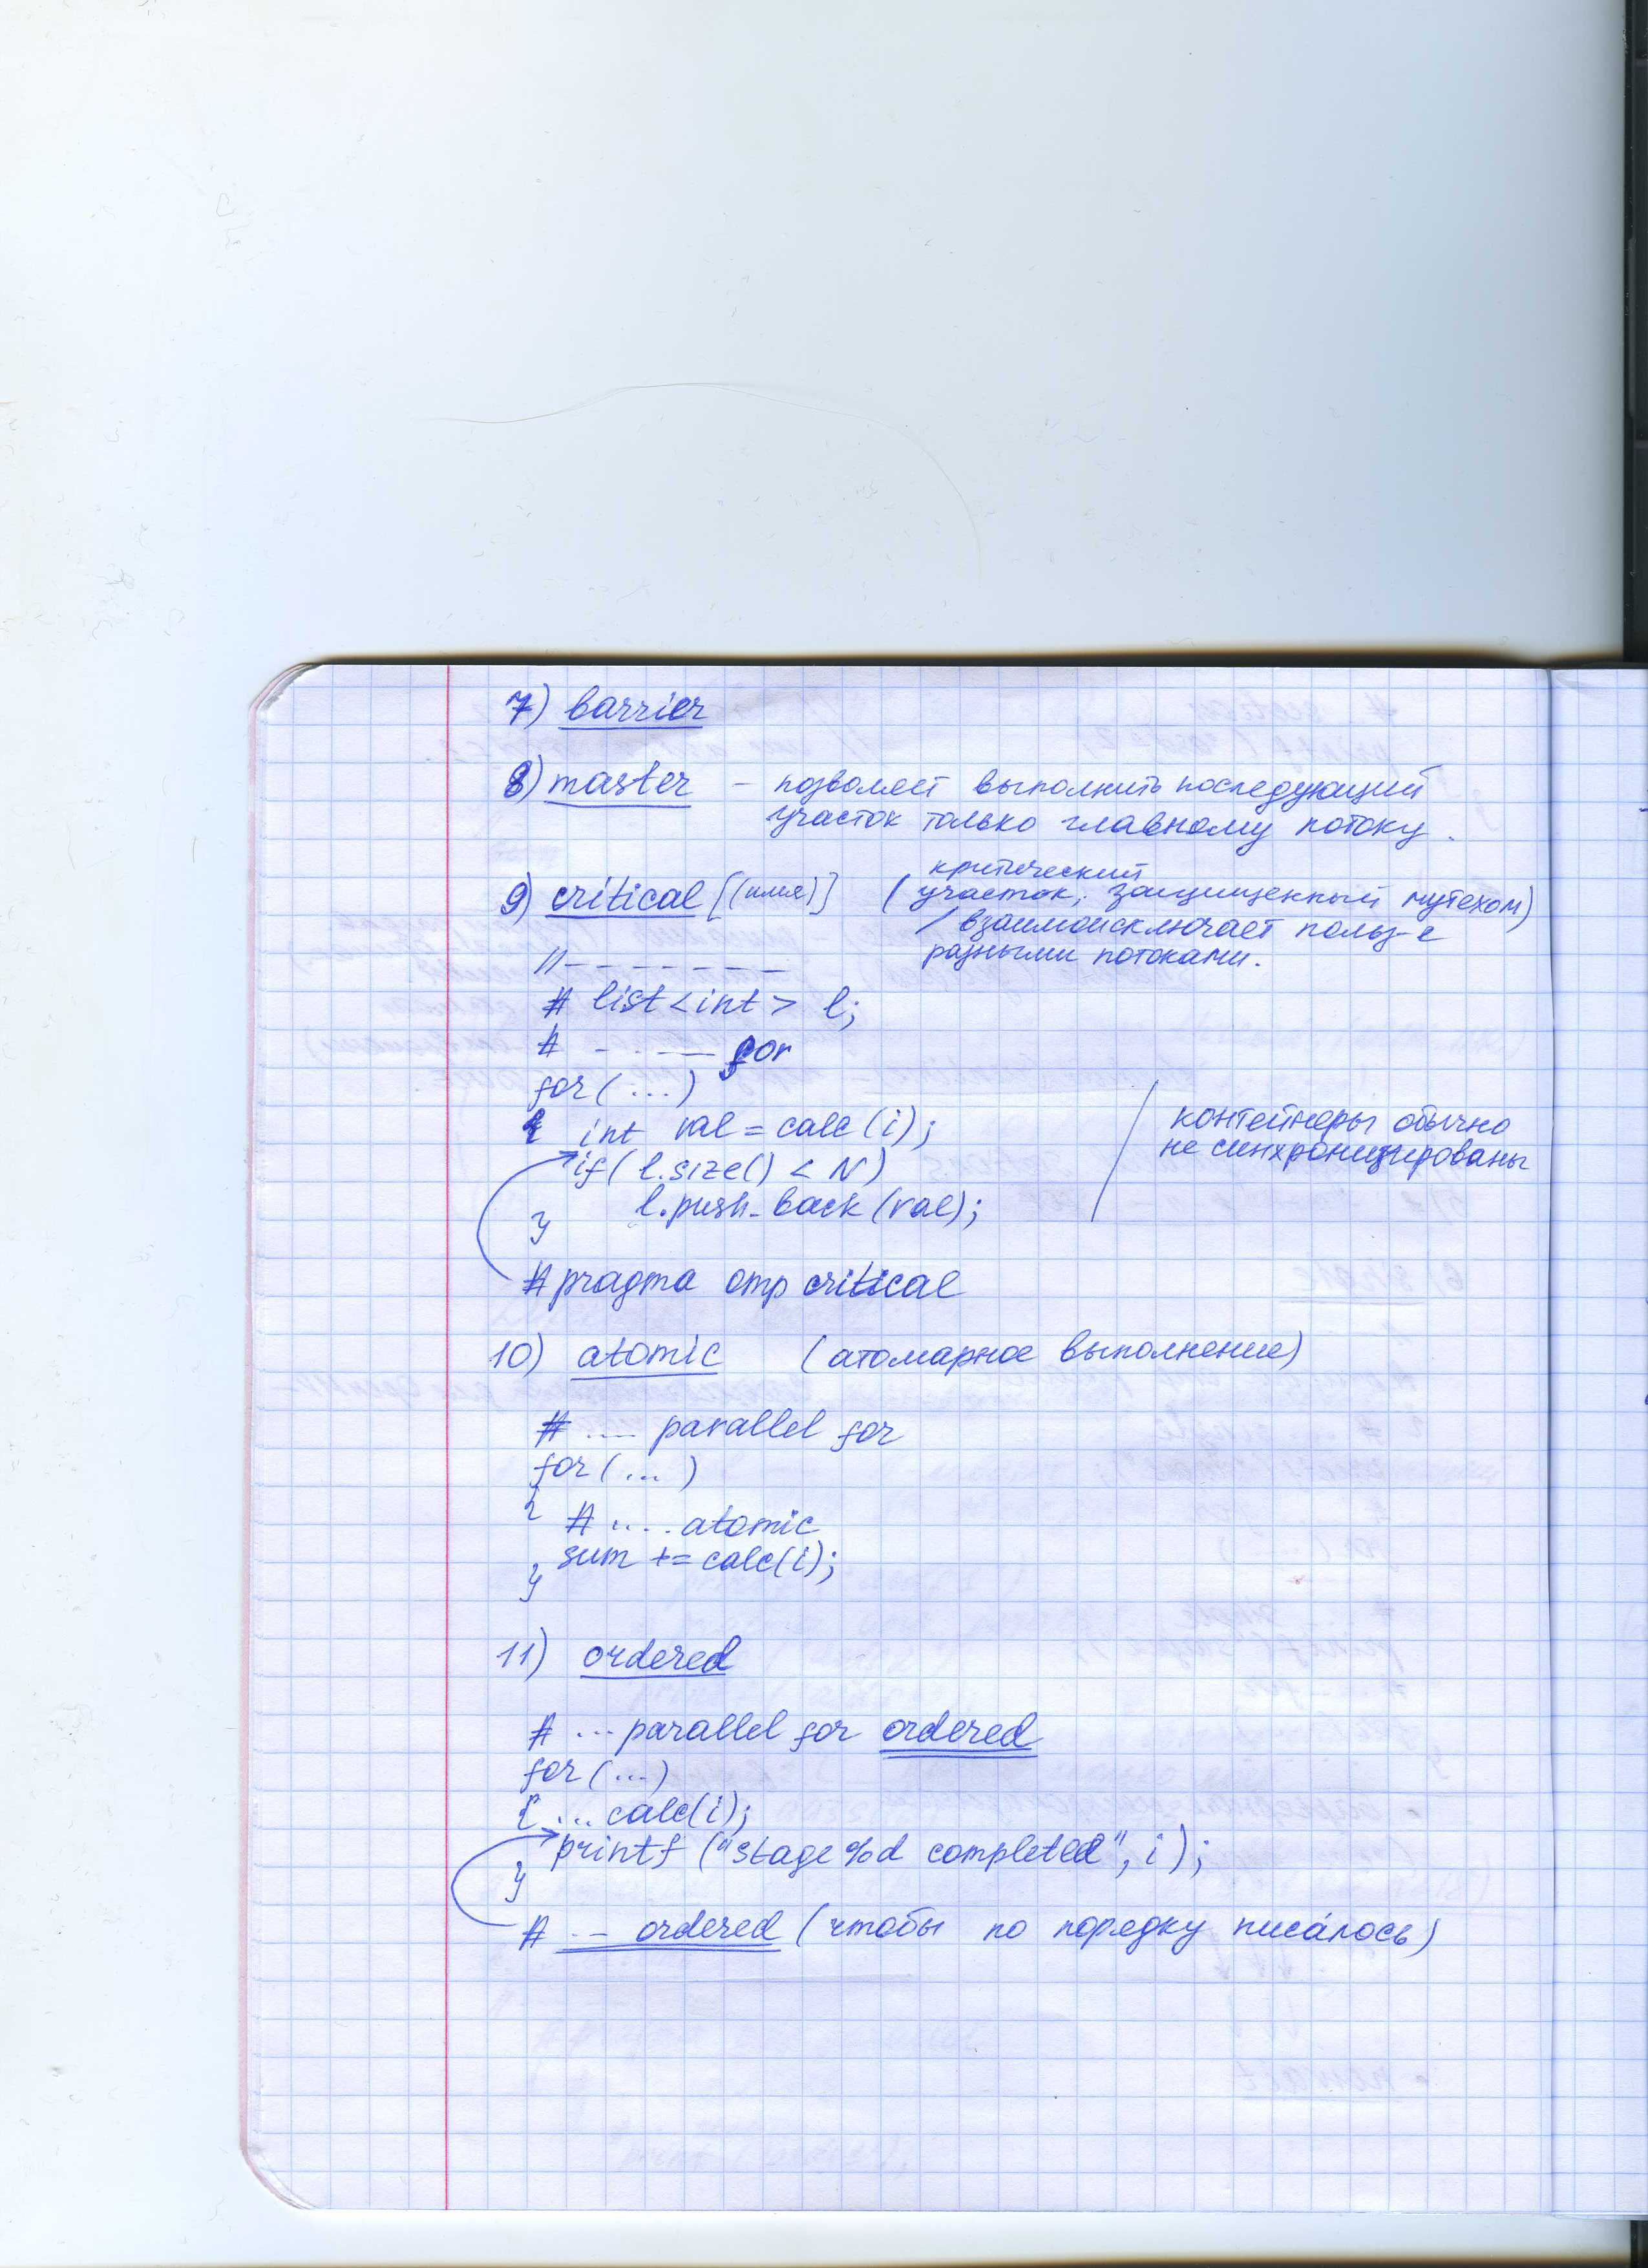 7) barrier
8) master – позволяет выполнить последующий
участок только главному потоку.
9) critical [(имя)] (критический
участок, защищенный мутехом)
/ взаимоисключает польз-е
разными потоками.
//- - - - - - -
# list<int> l;
# - . — for
for (...)
{ int val = calc(i);
if( l.size() < N)
l.push_back(val);
}
контейнеры обычно
не синхронизированы
#pragma omp critical
10) atomic (атомарное выполнение)
# .... parallel for
for (...)
{
# .... atomic
sum += calc(i);
}
11) ordered
# ... parallel for ordered
for (...)
{ ... calc(i);
printf ("stage %d completed", i);
}
# .— ordered (чтобы по порядку писа́лось)